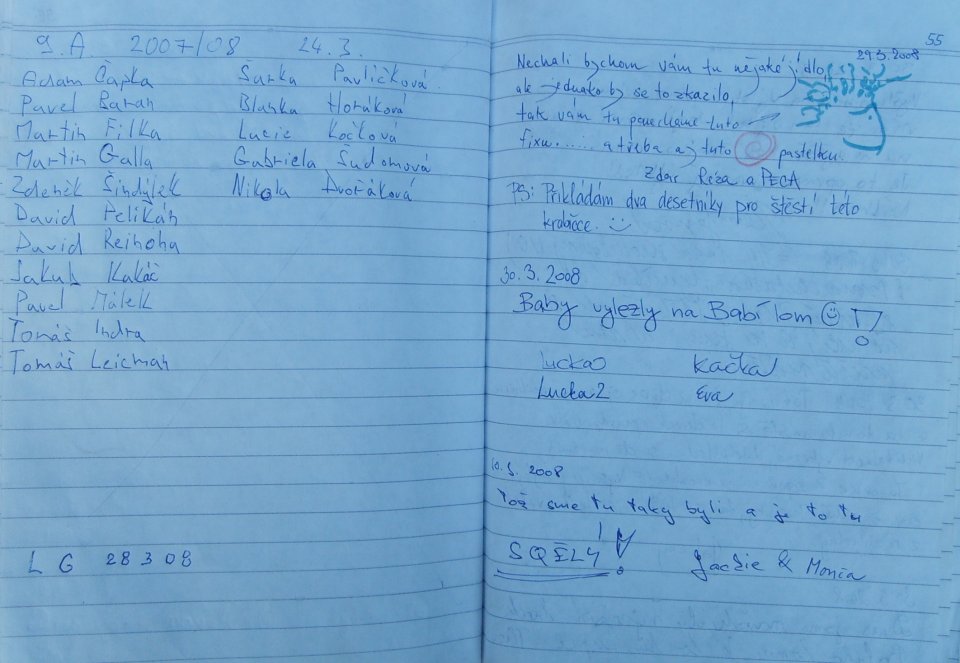 9.A 2007/08 24.3.
Adam Čapka Šárka Pavlíčková
Pavel Baran Blanka Horáková
Martin Filka Lucie Kočlová
Martin Galla Gabriela Šudomová
Zdeněk Šindýlek Nikola Dvořáková
David Pelikán
David Rejhoha
Jakub Kakáč
Pavel Málek
Tomáš Indra
Tomáš Leicman
L G 28 3 08
55
29.3.2008
Nechali bychom vám tu nějaké jídlo,
ale jednako by se to zkazilo,
tak vám tu ponecháme tuto
fixu...... a třeba aj tuto pastelku.
Zdar Réza a PECA
PS: Přikládám dva desetníky pro štěstí této
krabičce.
30.3.2008
Baby vylezly na Babí lom !
Lucka Kačka
Lucka2 Eva
2008
Tož sme tu taky byli a je to tu
SQĚLÝ! Jackie & Monča